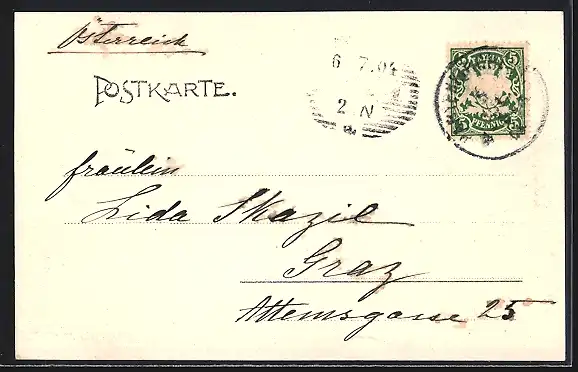 Österreich
POSTKARTE.
6 7.04
2 N
BAYERN
5 5
5 5
PFENNIG
fräulein
Lida Skazil
Graz
Attemsgasse 25